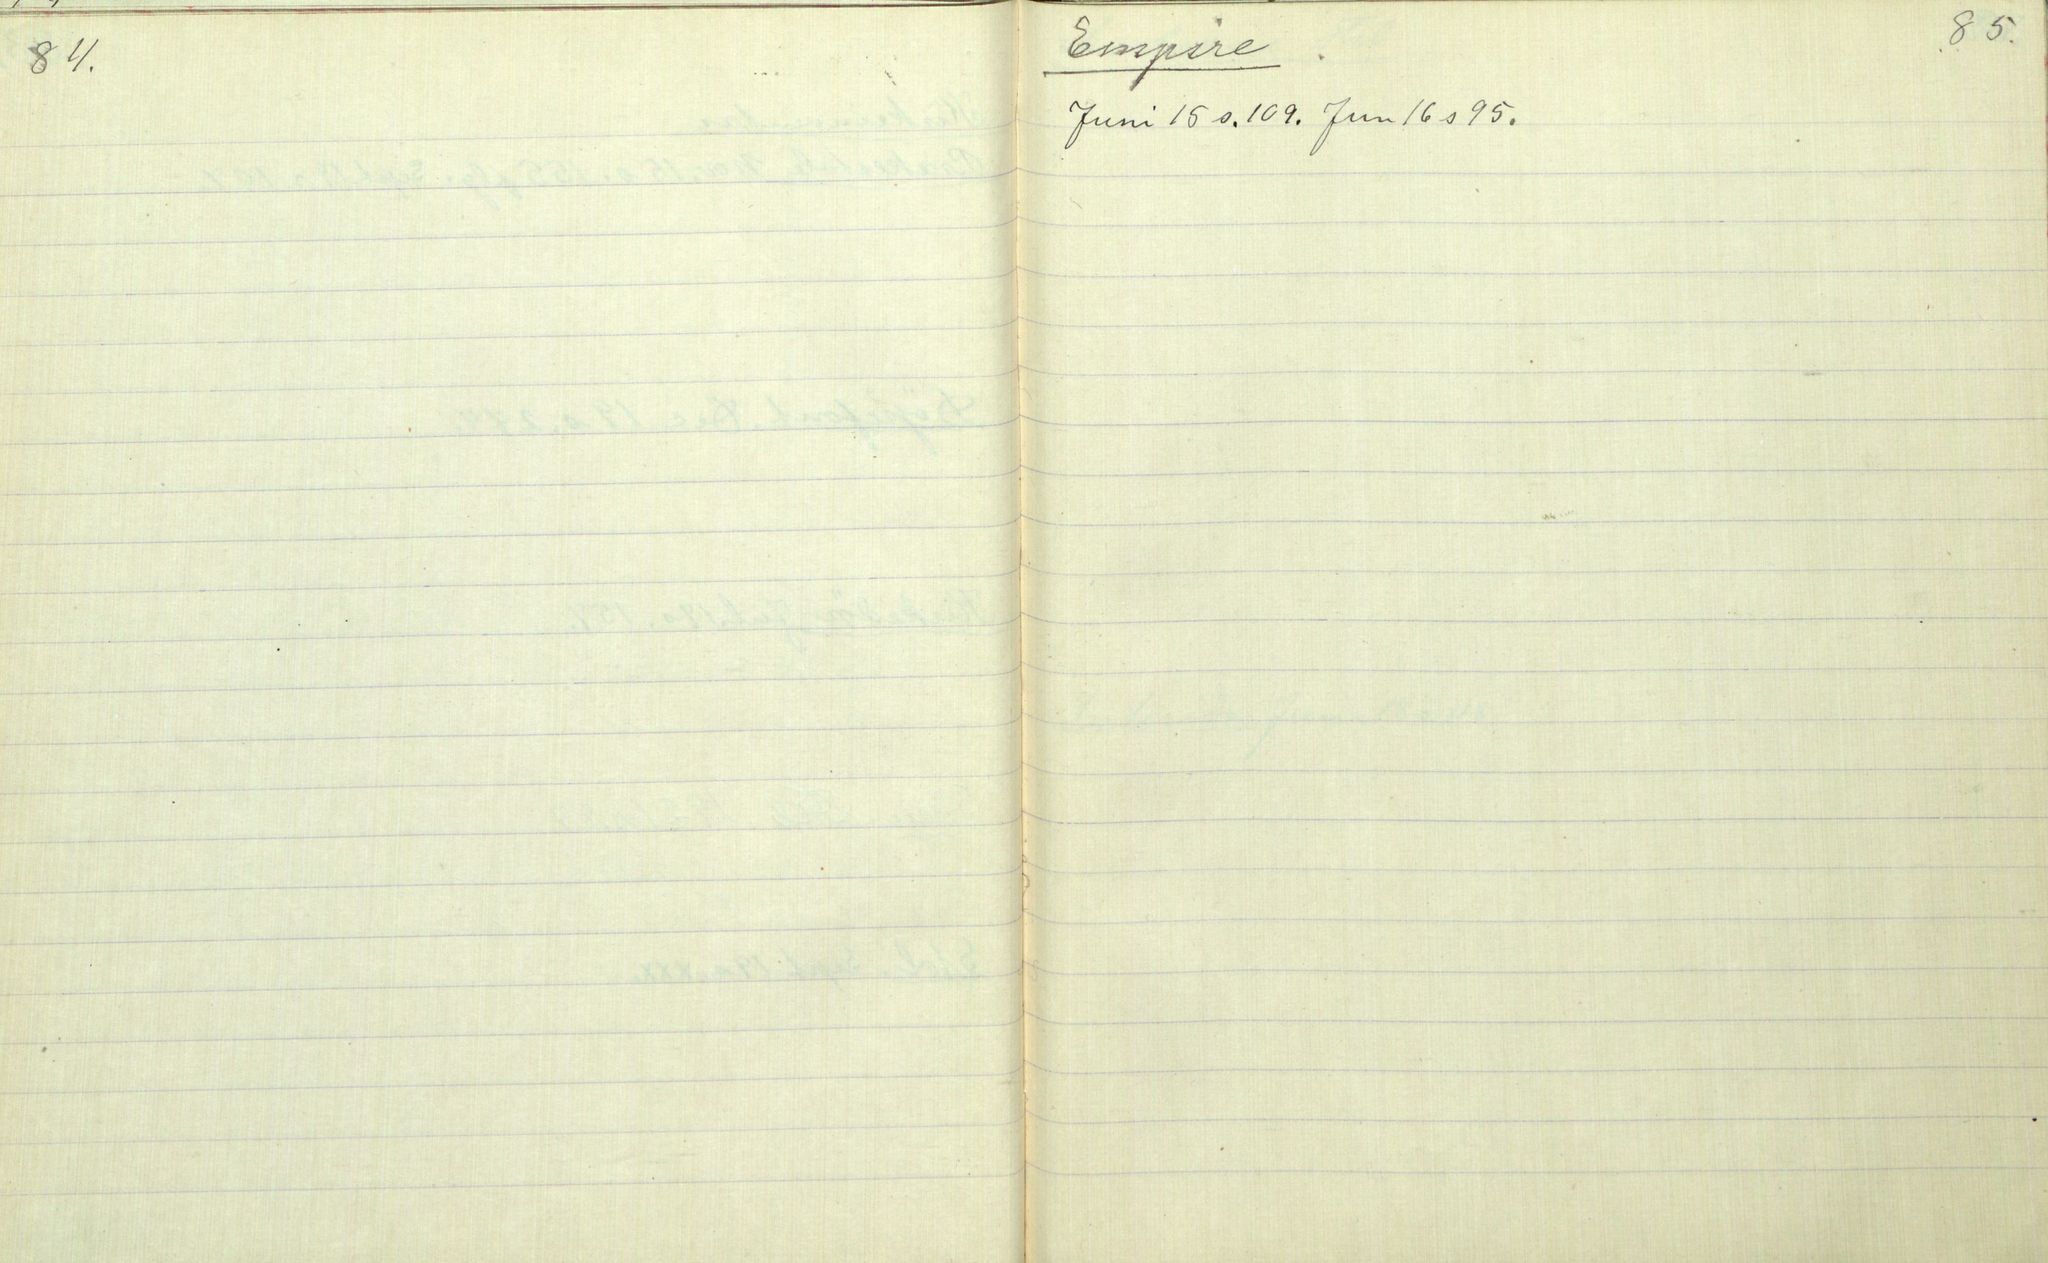 84.
85.
Empire
Juni 15 s. 109. Jun 16 s 95.